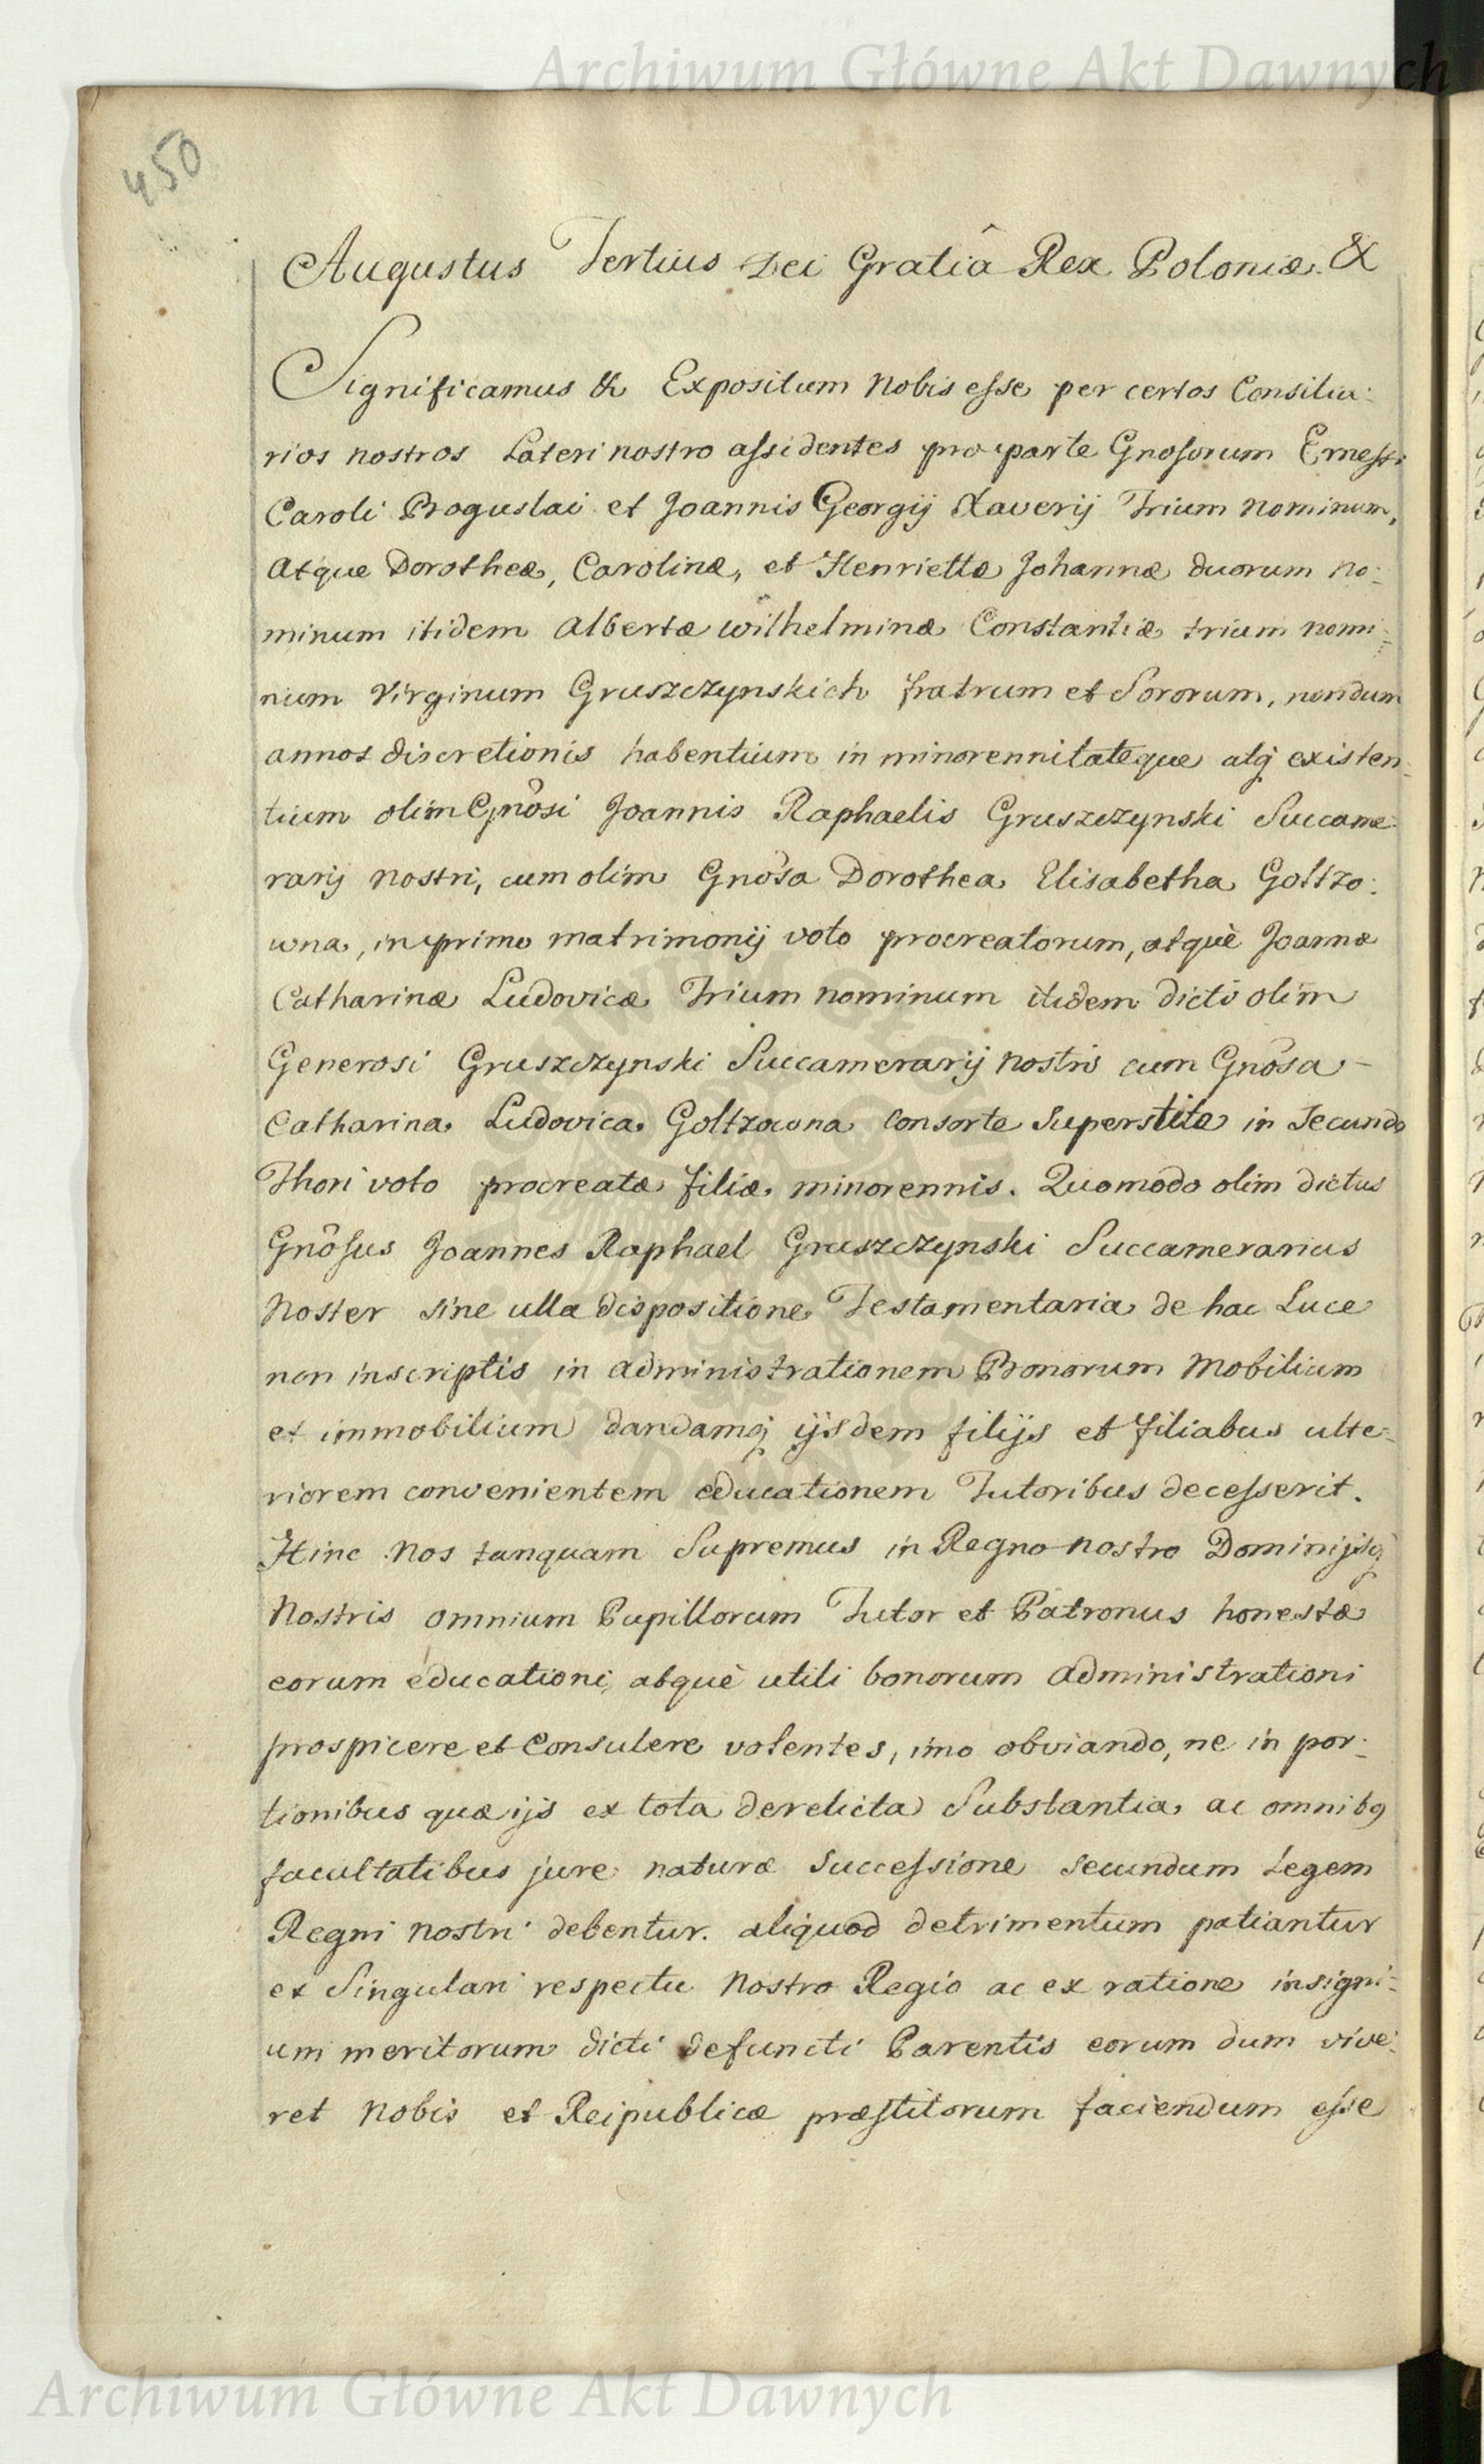 Archiwum Główne Akt Dawnych
450
Augustus Tertius Dei Gratiâ Rex Poloniæ &
Significamus & Expositum Nobis esse per certos Consilia:
rios nostros Lateri nostro assidentes pro parte Gnosorum Ernesti
Caroli Boguslai et Joannis Georgij Xaverij Trium Nominum,
atque Dorotheæ, Carolinæ, et Henriettæ Johannæ duorum no:
minum itidem Albertæ Wilhelminæ Constantiæ trium nomi:
num Virginum Gruszczynskich fratrum et Sororum, nondum
annos discretionis habentium in minorennitateque atq existen:
tium olim Gnôsi Joannis Raphaelis Gruszczynski Succame:
rarij nostri, cum olim Gnôsa Dorothea Elisabetha Goltzo:
wna, in primo matrimonij voto procreatorum, atquè Joannæ
Catharinæ Ludovicæ Trium nominum itidem dicti olim
Generosi Gruszczynski Succamerarij nostri cum Gnôsa
Catharina Ludovica Goltzowna Consorte Superstite in Secundo
Thori voto procreatæ filiæ minorennis. Quomodo olim dictus
Gnôsus Joannes Raphael Gruszczynski Succamerarius
Noster sine ulla dispositione Testamentaria de hac Luce
non inscriptis in administrationem Bonorum Mobilium
et immobilium dandamq ijsdem filijs et filiabus ulte:
riorem convenientem educationem Tutoribus decesserit.
Hinc Nos tanquam Supremus in Regno nostro Dominijsq
Nostris omnium Pupillorum Tutor et Patronus honestæ
eorum educationi, atquè utili bonorum administrationi
prospicere et Consulere volentes, imo obviando, ne in por:
tionibus quæ ijs ex tota derelicta Substantia, ac omnibq
facultatibus jure naturæ Successione secundum Legem
Regni nostri debentur. aliquod detrimentum patiantur
ex Singulari respectu Nostro Regio ac ex ratione insigni:
um meritorum dicti defuncti Parentis eorum dum vive:
ret Nobis et Reipublicæ præstitorum faciendum esse
Archiwum Główne Akt Dawnych